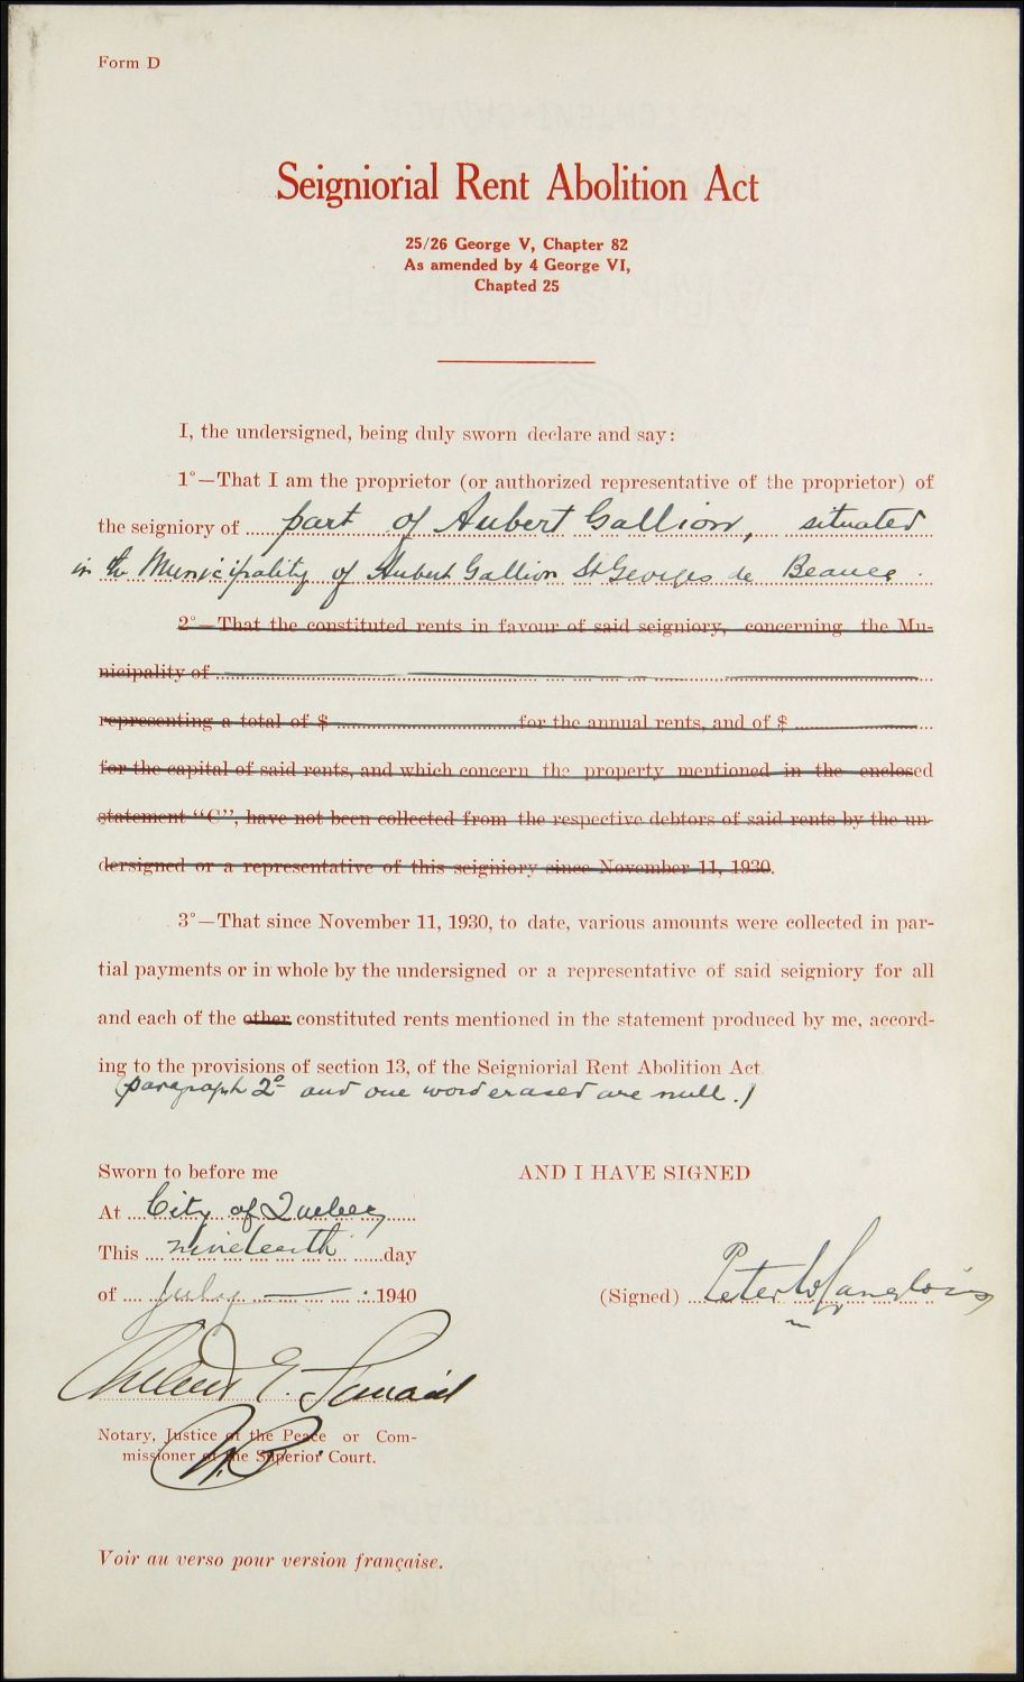 Form D
Seigniorial Rent Abolition Act
25/26 George V, Chapter 82
As amended by 4 George VI,
Chapted 25
I, the undersigned, being duly sworn declare and say:
1°—That I am the proprietor (or authorized representative of the proprietor) of
the seigniory of part of Aubert Gallion, situated
in the Municipality of Aubert Gallion St Georges de Beauce
2°—That the constituted rents in favour of said seigniory, concerning the Mu-
nicipality of
representing a total of $ for the annual rents, and of $
for the capital of said rents, and which concern the property mentioned in the enclosed
statement "C", have not been collected from the respective debtors of said rents by the un-
dersigned or a representative of this seigniory since November 11, 1930.
3°—That since November 11, 1930, to date, various amounts were collected in par-
tial payments or in whole by the undersigned or a representative of said seigniory for all
and each of the other constituted rents mentioned in the statement produced by me, accord-
ing to the provisions of section 13, of the Seigniorial Rent Abolition Act
(paragraph 2° and one word erased are null.)
Sworn to before me
At City of Quebec
This nineteenth day
of July 1940
AND I HAVE SIGNED
(Signed) Peter W Langlois
E.
Notary, Justice of the Peace or Com-
missioner of the Superior Court.
Voir au verso pour version française.